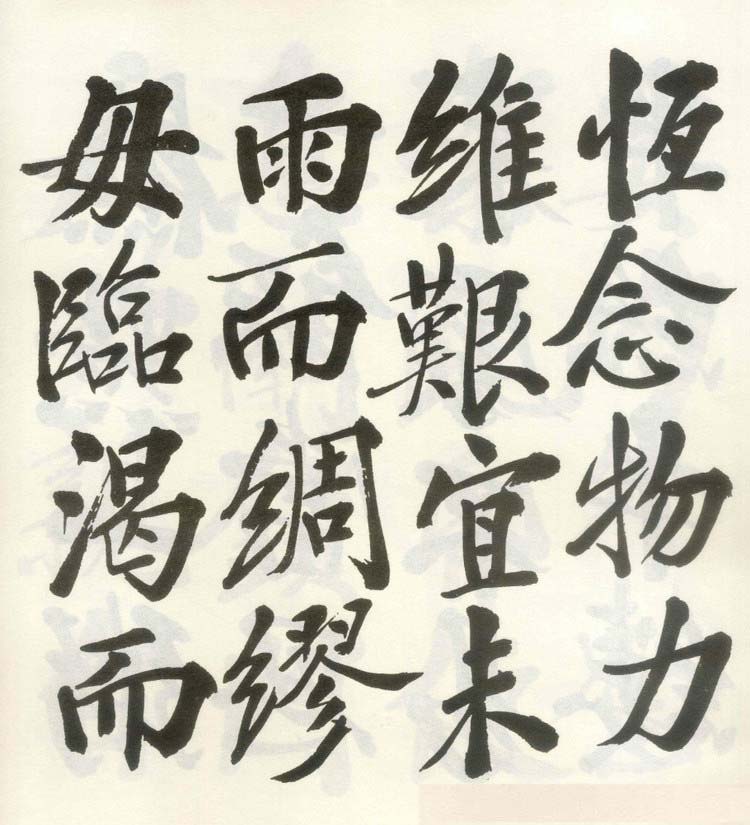 恆念物力
维艱宜未
雨而綢缪
毋臨渴而